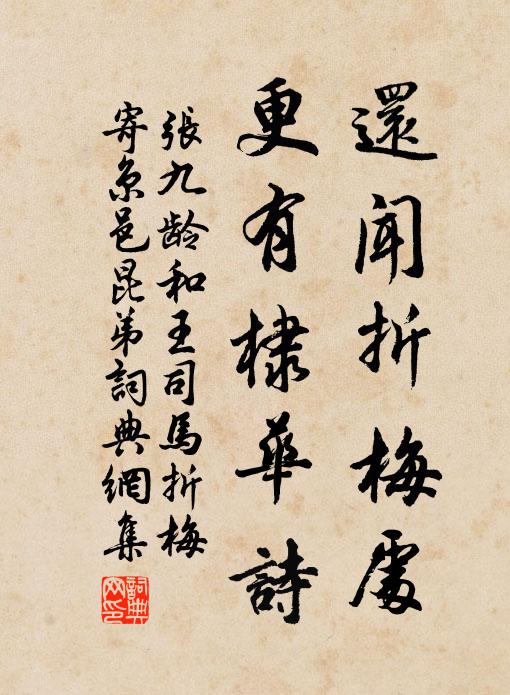 還聞折梅處
更有棣華詩
張九龄和王司馬折梅
寄京邑昆弟詞典網集
詞典網印